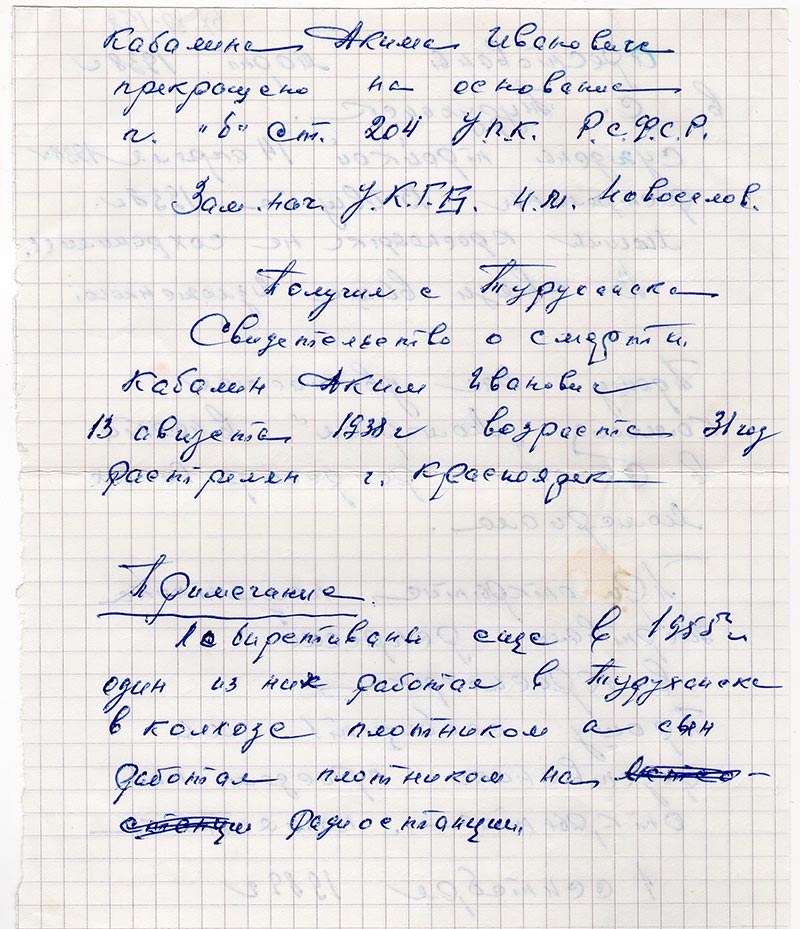 Кабалина Акима Ивановича
прекращено на основание
п. "б" ст. 204 У.П.К. Р.С.Ф.С.Р.
Зам. нач. У.К.Г.Б. Н.М. Новоселов.
Получил с Туруханска
Свидетельство о смерти.
Кабалин Аким Иванович
13 августа 1938 г возраста 31 год
расстрелян г. Красноярск
Примечание
еще в 1955 г
один из них работал в Туруханске
в колхозе плотником а сын
работал плотником на
радиостанции.